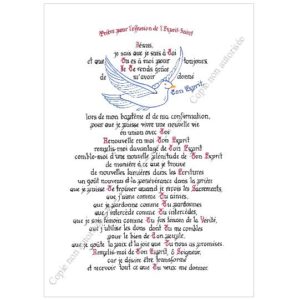 Prière pour l'effusion de l'Esprit-Saint
Jésus,
je sais que je suis à Toi
et que Tu es à moi pour toujours.
Je Te rends grâce
de m'avoir donné
Ton Esprit
lors de mon baptême et de ma confirmation,
pour que je puisse vivre une nouvelle vie
en union avec Toi
Renouvelle en moi Ton Esprit
remplis-moi davantage de Ton Esprit
comble-moi d'une nouvelle plénitude de Ton Esprit
de manière à ce que je trouve
de nouvelles lumières dans les Ecritures
un goût nouveau et la persévérance dans la prière
que je puisse Te trouver quand je reçois les Sacrements,
que j'aime comme Tu aimes,
que je pardonne comme Tu pardonnes
que j'intercède comme Tu intercèdes,
que je sois Ton témoin comme Tu fus témoin de la Vérité,
que j'utilise les dons dont Tu me combles
pour le bien de Ton peuple,
que je goûte la paix et la joie que Tu nous as promises.
Remplis-moi de Ton Esprit, ô Seigneur,
car je désire être transformé
et recevoir tout ce que Tu veux me donner.
Copie non autorisée
Copie non autorisée